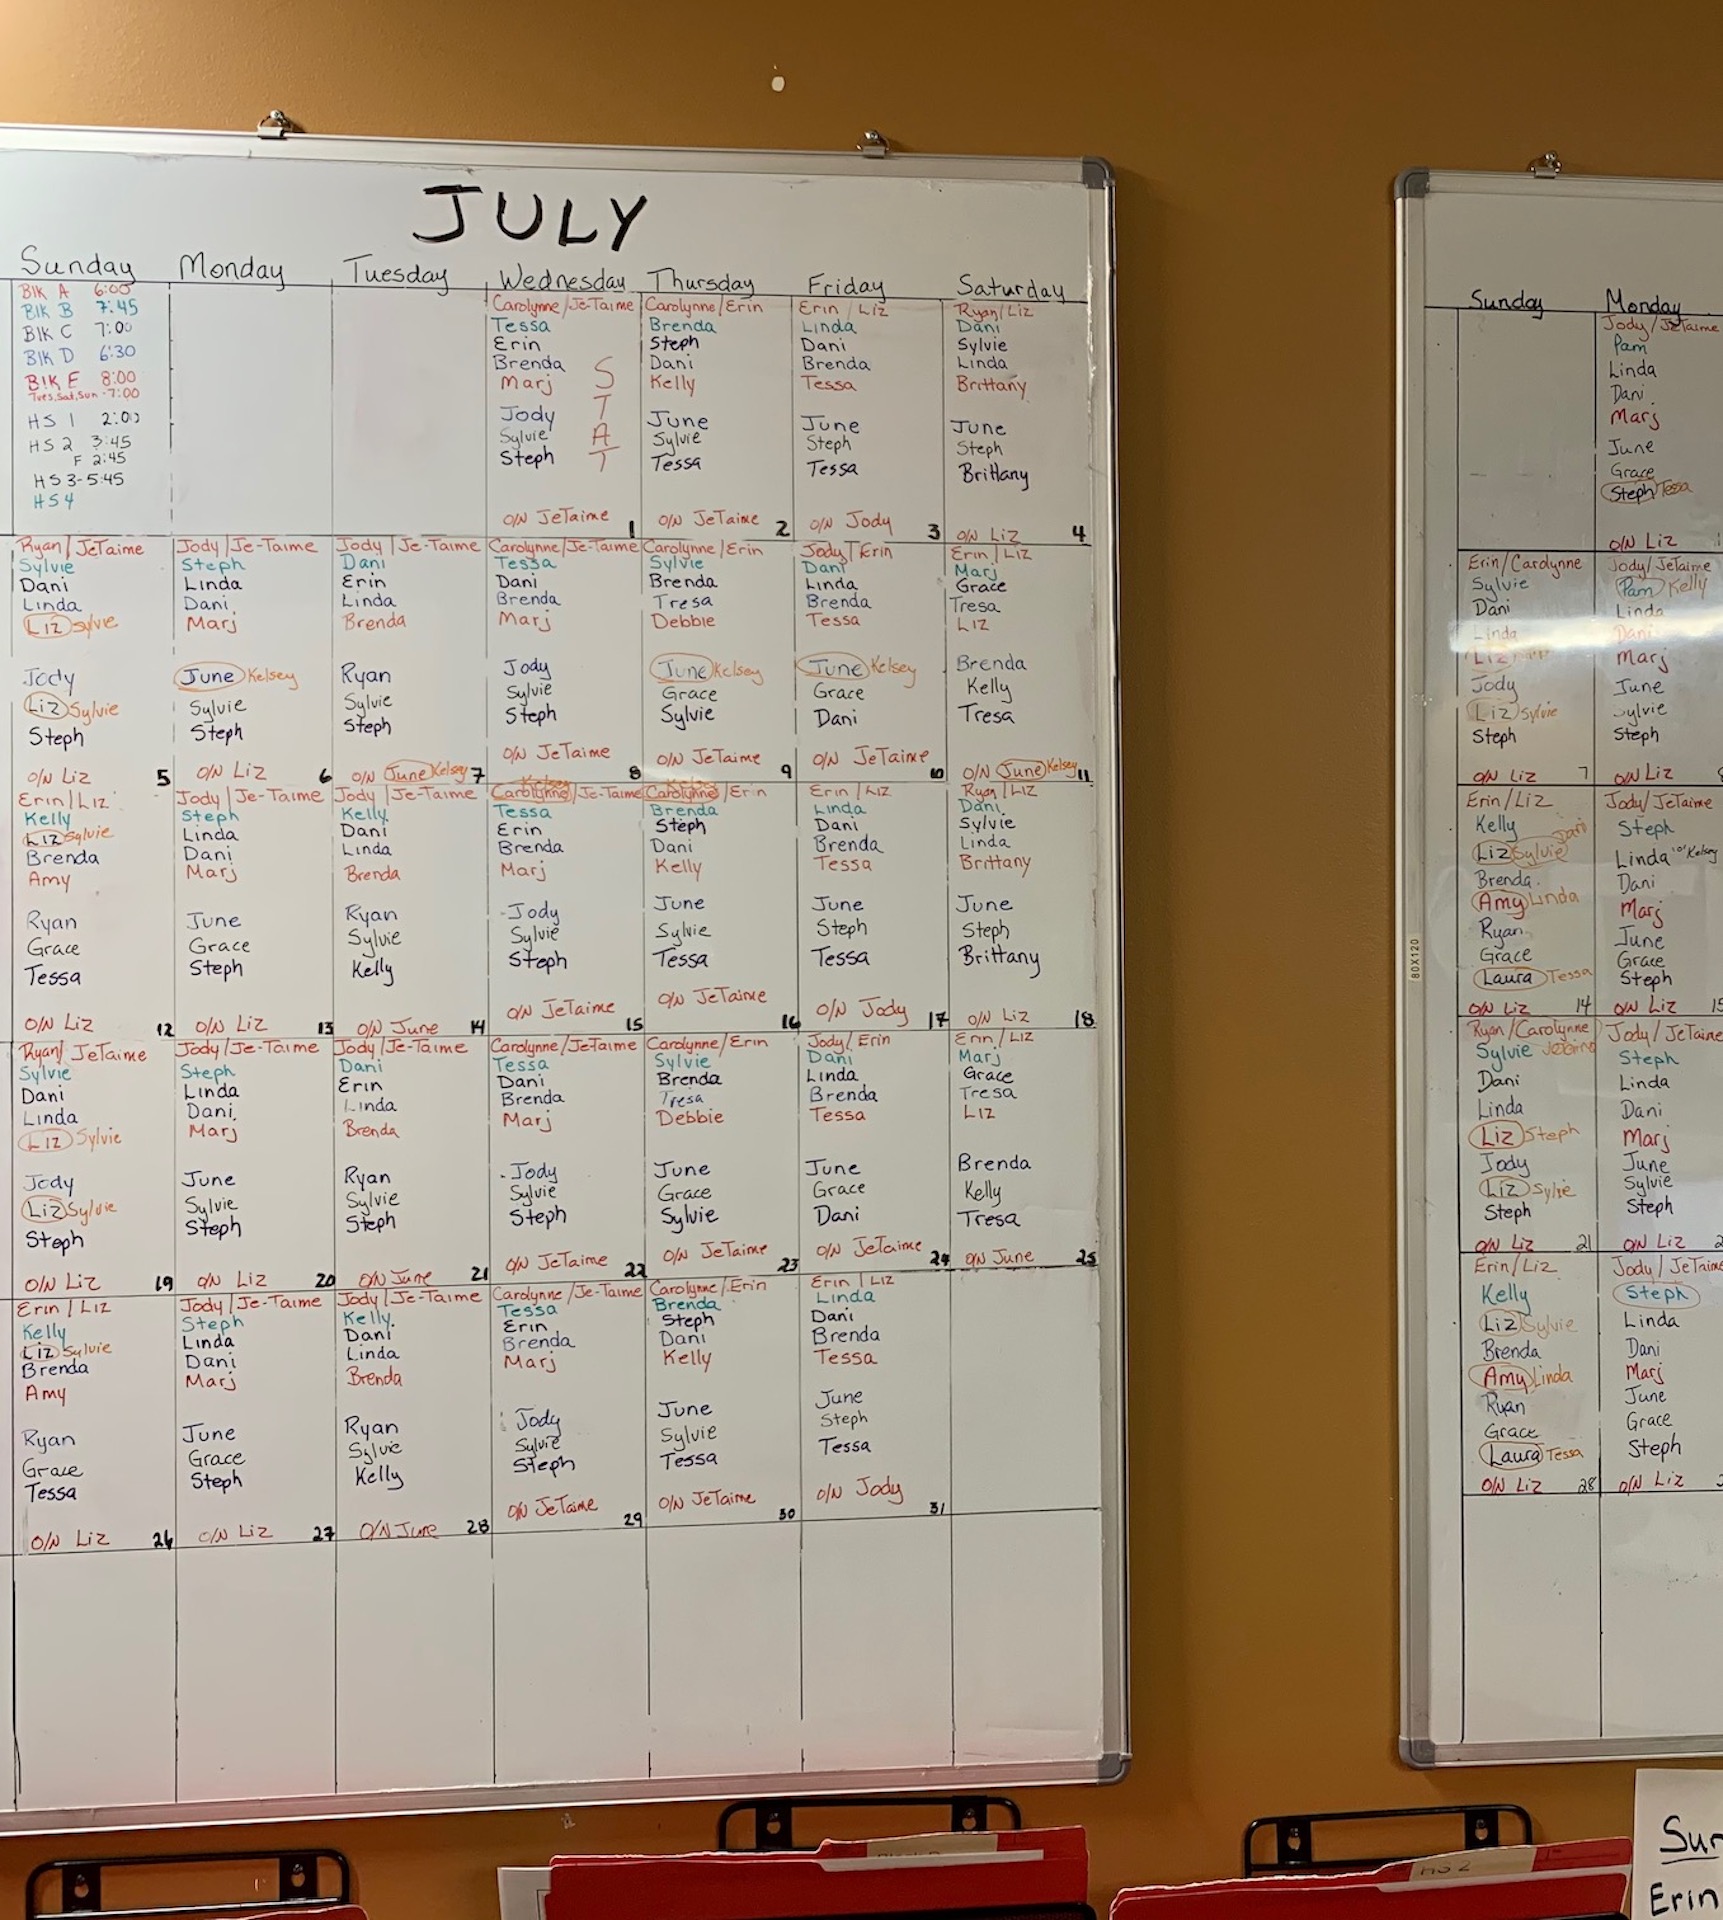 JULY
Sunday Monday Tuesday Wednesday Thursday Friday Saturday
Blk A 6:00
Blk B 7:45
Blk C 7:00
Blk D 6:30
Blk E 8:00
Tues, Sat, Sun - 7:00
HS 1 2:00
HS 2 3:45
F 2:45
HS 3 - 5:45
HS 4
Carolynne/Je-Taime
Tessa
Erin
Brenda
Marj
Jody
Sylvie
Steph
STAT
O/N JeTaime 1
Carolynne/Erin
Brenda
Steph
Dani
Kelly
June
Sylvie
Tessa
O/N JeTaime 2
Erin/Liz
Linda
Dani
Brenda
Tessa
June
Steph
Tessa
O/N Jody 3
Ryan/Liz
Dani
Sylvie
Linda
Brittany
June
Steph
Brittany
O/N Liz 4
Ryan/JeTaime
Sylvie
Dani
Linda
Liz Sylvie
Jody
Liz Sylvie
Steph
O/N Liz 5
Jody/Je-Taime
Steph
Linda
Dani
Marj
June Kelsey
Sylvie
Steph
O/N Liz 6
Jody/Je-Taime
Dani
Erin
Linda
Brenda
Ryan
Sylvie
Steph
O/N June Kelsey 7
Carolynne/Je-Taime
Tessa
Dani
Brenda
Marj
Jody
Sylvie
Steph
O/N JeTaime 8
Carolynne/Erin
Sylvie
Brenda
Tresa
Debbie
June Kelsey
Grace
Sylvie
O/N JeTaime 9
Jody/Erin
Dani
Linda
Brenda
Tessa
June Kelsey
Grace
Dani
O/N JeTaime 10
Erin/Liz
Marj
Grace
Tresa
Liz
Brenda
Kelly
Tresa
O/N June Kelsey 11
Erin/Liz
Kelly
Liz Sylvie
Brenda
Amy
Ryan
Grace
Tessa
O/N Liz 12
Jody/Je-Taime
Steph
Linda
Dani
Marj
June
Grace
Steph
O/N Liz 13
Jody/Je-Taime
Kelly
Dani
Linda
Brenda
Ryan
Sylvie
Kelly
O/N June 14
Kelsey
Carolynne/Je-Taime
Tessa
Erin
Brenda
Marj
Jody
Sylvie
Steph
O/N JeTaime 15
Kelsey
Carolynne/Erin
Brenda
Steph
Dani
Kelly
June
Sylvie
Tessa
O/N JeTaime 16
Erin/Liz
Linda
Dani
Brenda
Tessa
June
Steph
Tessa
O/N Jody 17
Ryan/Liz
Dani
Sylvie
Linda
Brittany
June
Steph
Brittany
O/N Liz 18
Ryan/JeTaime
Sylvie
Dani
Linda
Liz Sylvie
Jody
Liz Sylvie
Steph
O/N Liz 19
Jody/Je-Taime
Steph
Linda
Dani
Marj
June
Sylvie
Steph
O/N Liz 20
Jody/Je-Taime
Dani
Erin
Linda
Brenda
Ryan
Sylvie
Steph
O/N June 21
Carolynne/JeTaime
Tessa
Dani
Brenda
Marj
Jody
Sylvie
Steph
O/N JeTaime 22
Carolynne/Erin
Sylvie
Brenda
Tresa
Debbie
June
Grace
Sylvie
O/N JeTaime 23
Jody/Erin
Dani
Linda
Brenda
Tessa
June
Grace
Dani
O/N JeTaime 24
Erin/Liz
Marj
Grace
Tresa
Liz
Brenda
Kelly
Tresa
O/N June 25
Erin/Liz
Kelly
Liz Sylvie
Brenda
Amy
Ryan
Grace
Tessa
O/N Liz 26
Jody/Je-Taime
Steph
Linda
Dani
Marj
June
Grace
Steph
O/N Liz 27
Jody/Je-Taime
Kelly
Dani
Linda
Brenda
Ryan
Sylvie
Kelly
O/N June 28
Carolynne/Je-Taime
Tessa
Erin
Brenda
Marj
Jody
Sylvie
Steph
O/N JeTaime 29
Carolynne/Erin
Brenda
Steph
Dani
Kelly
June
Sylvie
Tessa
O/N JeTaime 30
Erin/Liz
Linda
Dani
Brenda
Tessa
June
Steph
Tessa
O/N Jody 31
Sunday Monday
Jody/JeTaime
Pam
Linda
Dani
Marj
June
Grace
Steph Tessa
O/N Liz
Erin/Carolynne
Sylvie
Dani
Linda
Liz
Jody
Liz Sylvie
Steph
O/N Liz 7
Jody/JeTaime
Pam Kelly
Linda
Dani
Marj
June
Sylvie
Steph
O/N Liz
Erin/Liz
Kelly
Dani
Liz Sylvie
Brenda
Amy Linda
Ryan
Grace
Laura Tessa
O/N Liz 14
Jody/JeTaime
Steph
Linda Kelsey
Dani
Marj
June
Grace
Steph
O/N Liz 15
Ryan/Carolynne
Sylvie JeTaime
Dani
Linda
Liz Steph
Jody
Liz Sylvie
Steph
O/N Liz 21
Jody/JeTaime
Steph
Linda
Dani
Marj
June
Sylvie
Steph
O/N Liz 2
Erin/Liz
Kelly
Liz Sylvie
Brenda
Amy Linda
Ryan
Grace
Laura Tessa
O/N Liz 28
Jody/JeTaime
Steph
Linda
Dani
Marj
June
Grace
Steph
O/N Liz
80X120
HS 2
Sun
Erin